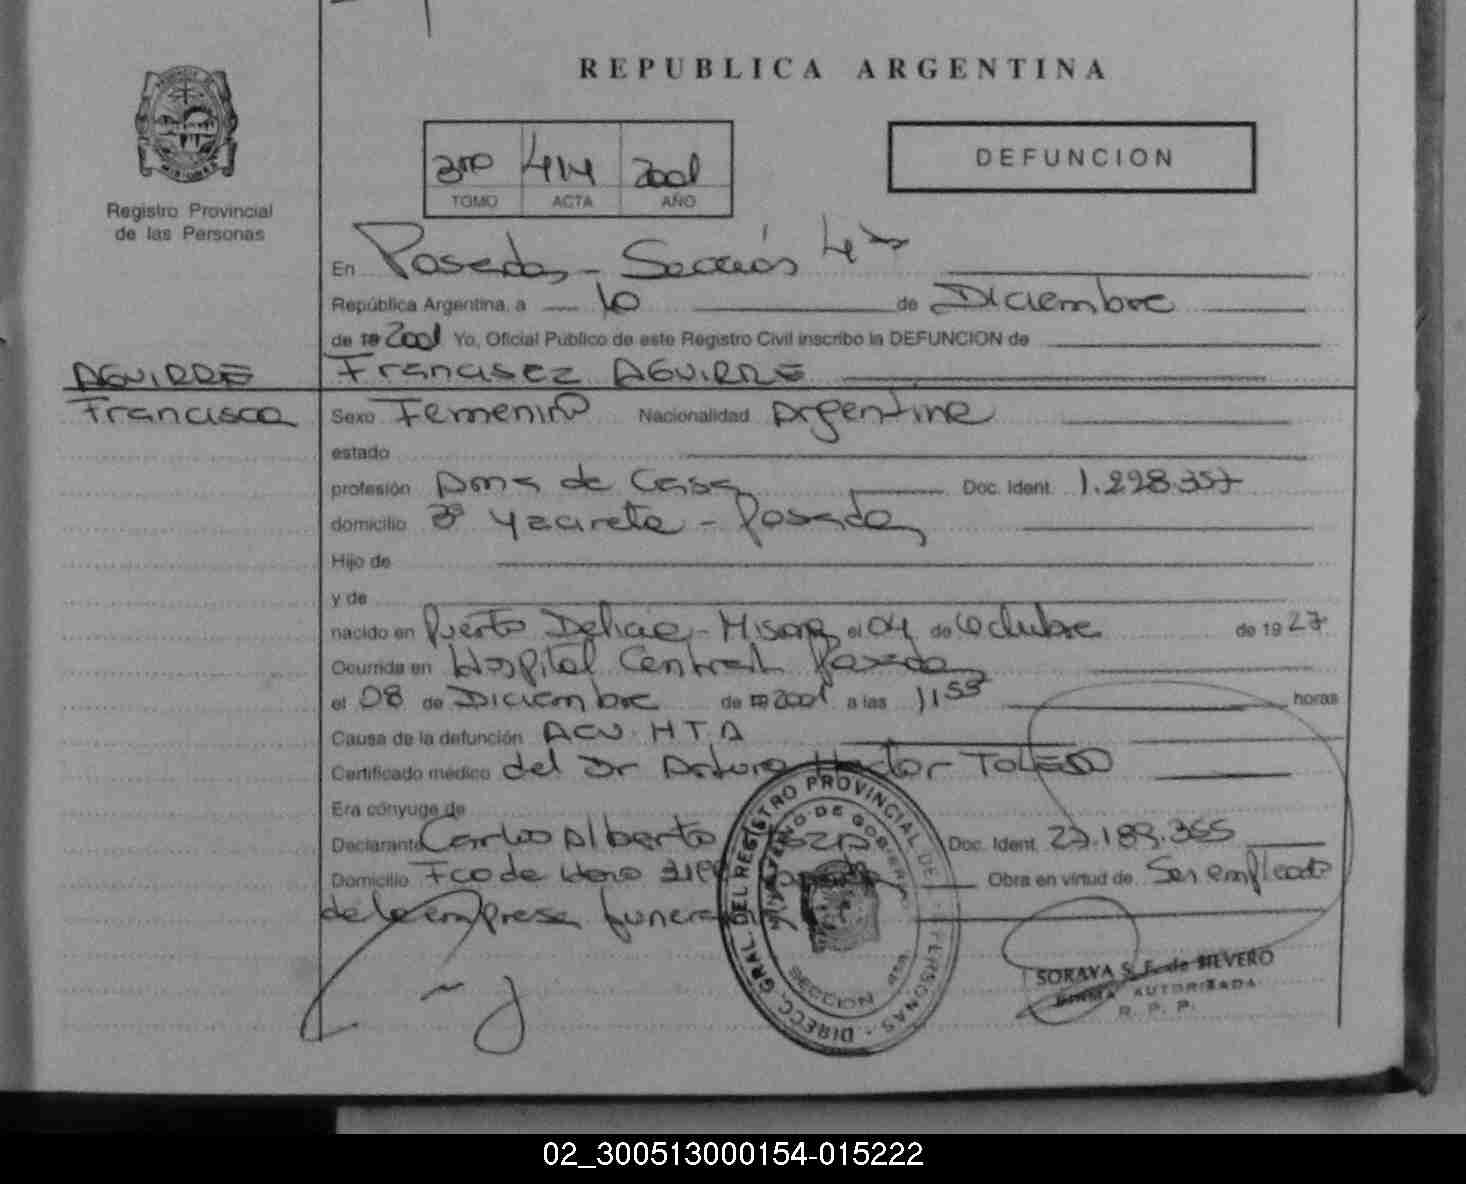 REPUBLICA ARGENTINA
Registro Provincial
de las Personas
3ro 414 2001
TOMO ACTA AÑO
DEFUNCION
En Posadas - Sección 4ta
República Argentina, a 10 de Diciembre
de 19 2001 Yo, Oficial Público de este Registro Civil inscribo la DEFUNCION de
AGUIRRE
Francisca
Francisca AGUIRRE
Sexo Femenino Nacionalidad Argentina
estado
profesión Ama de Casa Doc. Ident. 1.298.357
domicilio Bº Yacireta - Posadas
Hijo de
y de
nacido en Puerto Delicia - Misiones el 04 de Octubre de 19 27
Ocurrida en Hospital Central Posadas
el 08 de Diciembre de 19 2001 a las 1153 horas
Causa de la defunción ACV. HTA
Certificado médico del Dr Arturo Hector TOLEDO
Era cónyuge de
Declarante Carlos Alberto Doc. Ident. 27.189.355
Domicilio Fco de Haro Obra en virtud de Ser empleado
de la empresa funeraria
DIRECC. GRAL. DEL REGISTRO PROVINCIAL DE PERSONAS
MINISTERIO DE GOBIERNO
SECCION 4ta.
SORAYA S. F. de SILVERO
FIRMA AUTORIZADA
R. P. P.
02_300513000154-015222